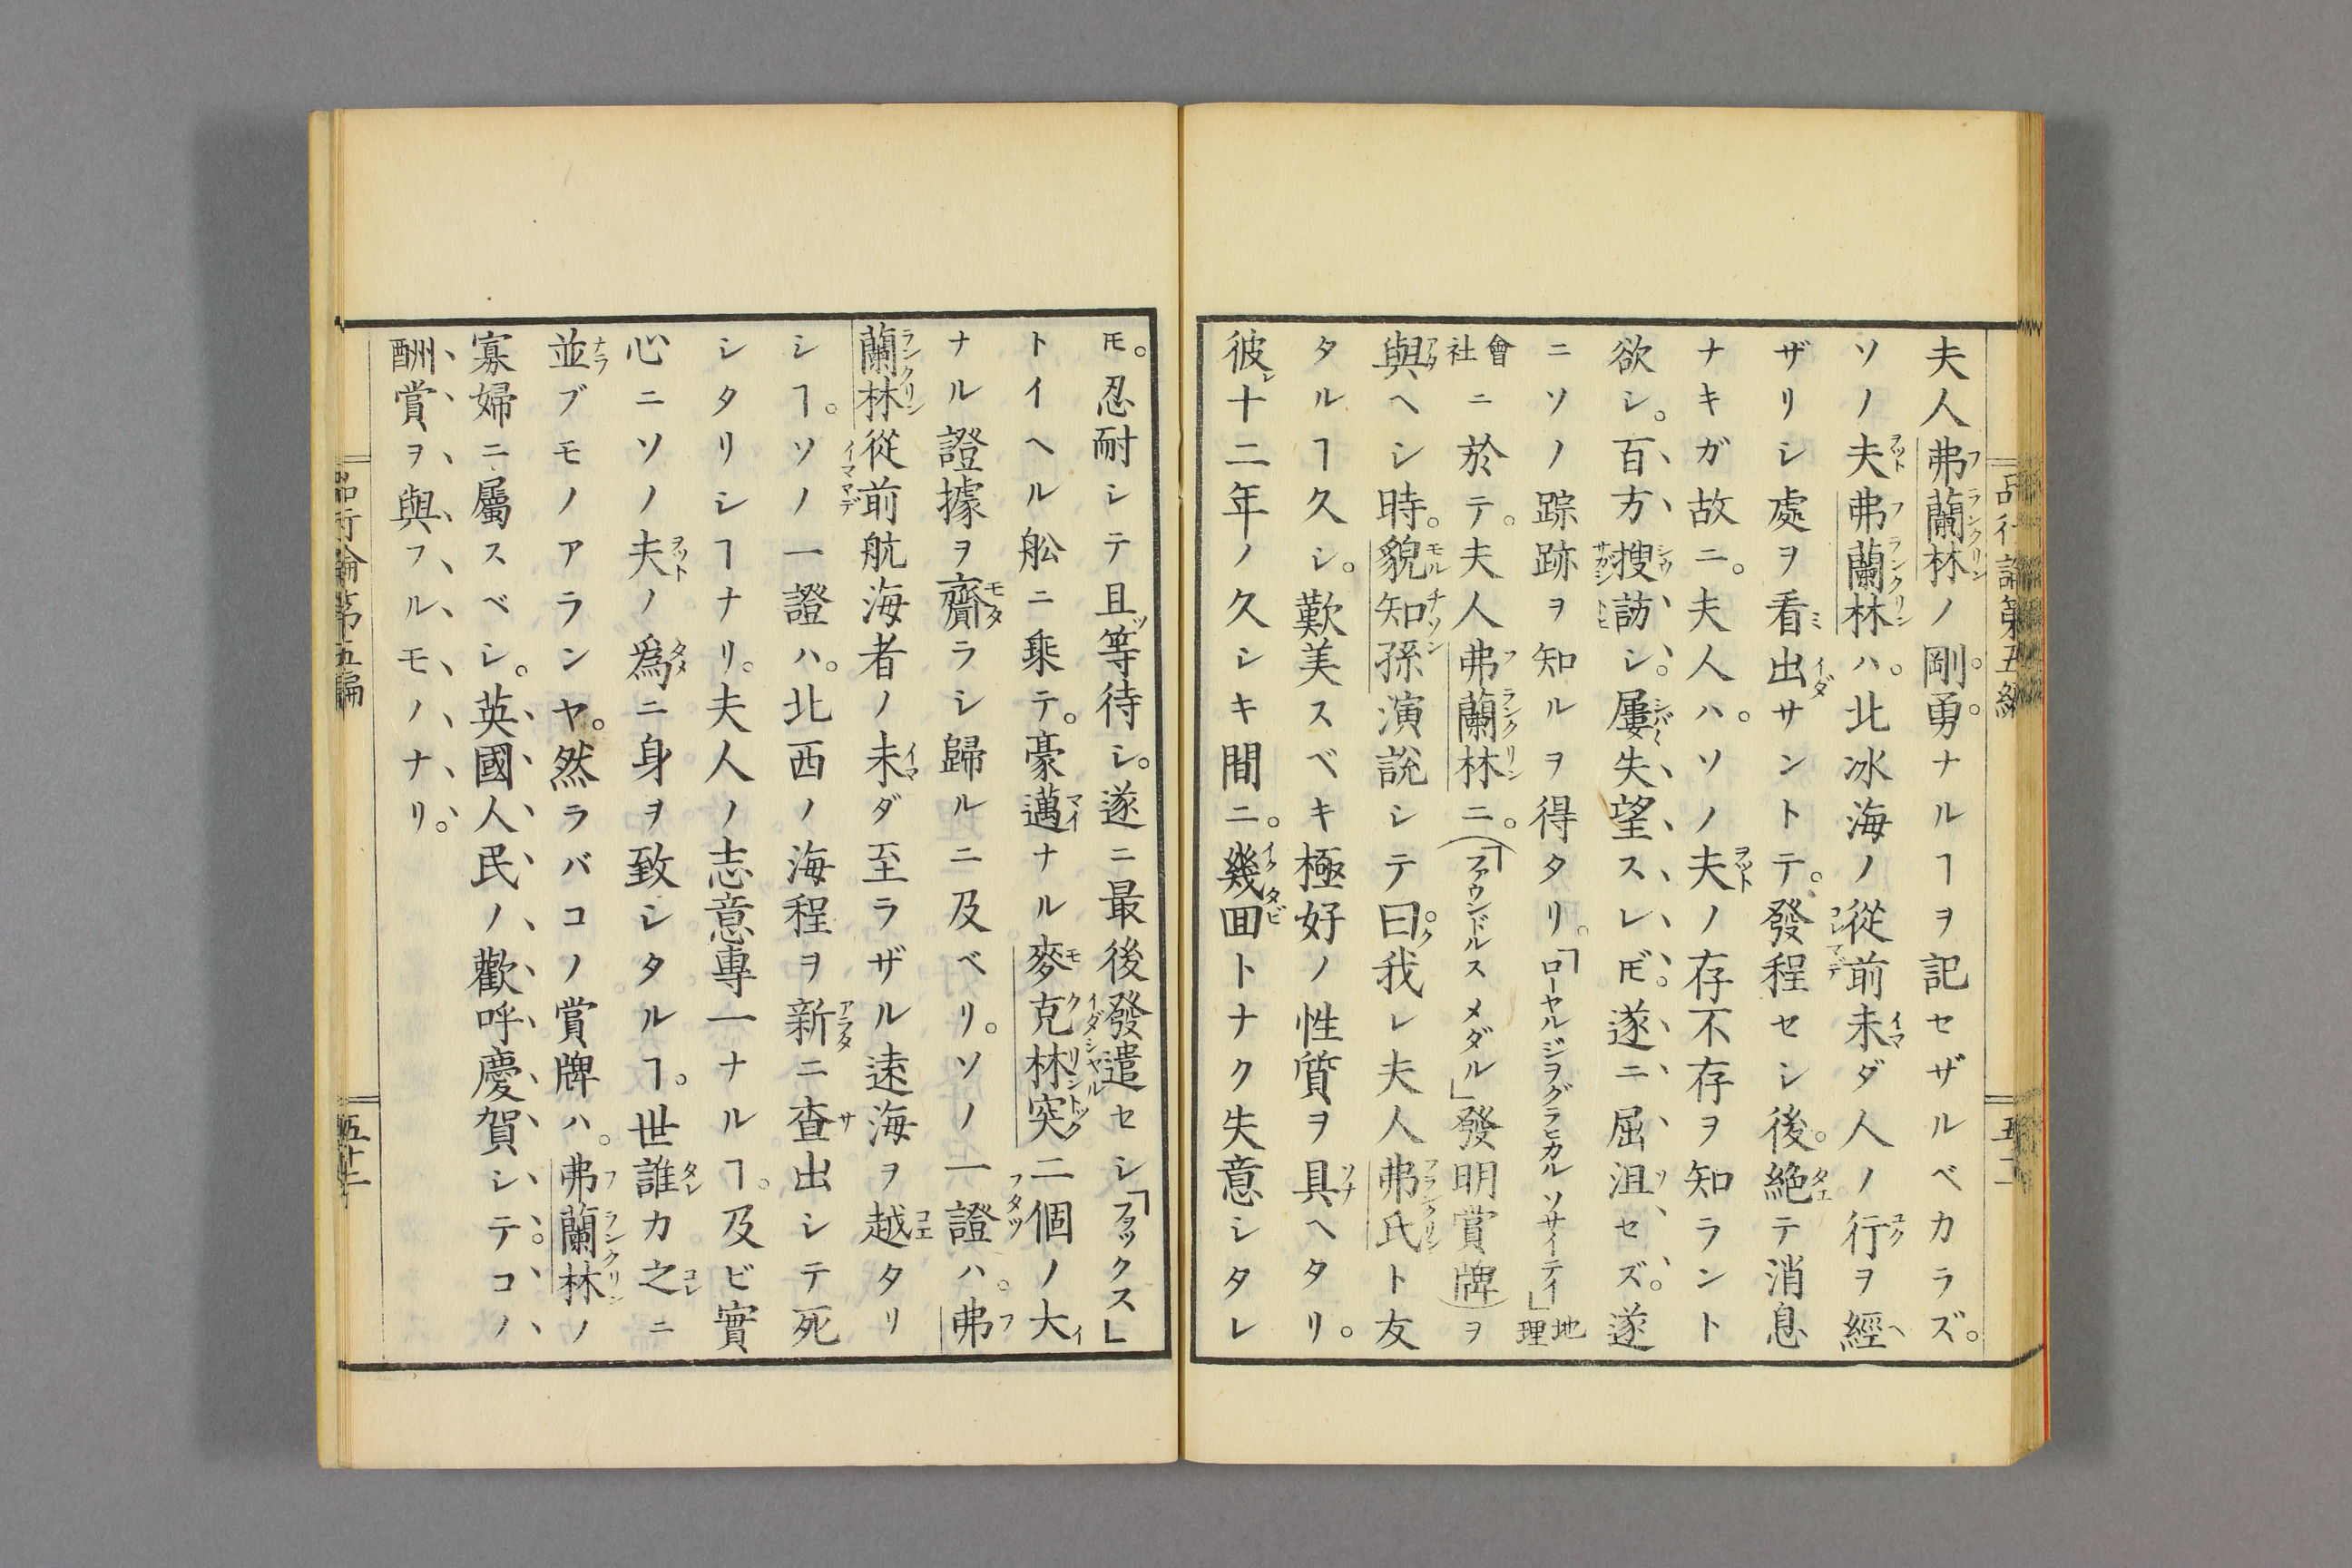 夫人弗蘭林ノ剛勇ナルヿヲ記セザルベカラズ。
ソノ夫弗蘭林ハ。北冰海ノ從前未ダ人ノ行ヲ經
ザリシ處ヲ看出サントテ。發程セシ後。絶テ消息
ナキガ故ニ。夫人ハ。ソノ夫ノ存不存ヲ知ラント
欲シ。百方搜訪シ。屢失望スレ𪜈。遂ニ屈沮セズ。遂
ニソノ踪跡ヲ知ルヲ得タリ。「ローヤルジヲグラヒカルソサイーテイ」地理
會社ニ於テ。夫人弗蘭林ニ。(「ファウンドルスメダル」發明賞牌)ヲ
與ヘシ時。貌知孫演說シテ曰。我レ夫人弗氏ト友
タルヿ久シ。歎美スベキ極好ノ性質ヲ具ヘタリ。
彼十二年ノ久シキ間ニ。幾囬トナク失意シタレ
𪜈。忍耐シテ且等待シ。遂ニ最後發遣セシ「フヲックス」
トイヘル舩ニ乗テ。豪邁ナル麥克林突二個ノ大
ナル證據ヲ齎ラシ歸ルニ及ベリ。ソノ一證ハ。弗
蘭林從前航海者ノ未ダ至ラザル遠海ヲ越タリ
シヿ。ソノ一證ハ。北西ノ海程ヲ新ニ査出シテ死
シタリシヿナリ。夫人ノ志意專一ナルヿ。及ビ實
心ニソノ夫ノ爲ニ身ヲ致シタルヿ。世誰カ之ニ
並ブモノアランヤ。然ラバコノ賞牌ハ。弗蘭林ノ
寡婦ニ屬スベシ。英國人民ノ歡呼慶賀シテコノ
酬賞ヲ與フルモノナリ。
品行論第五編
五十二